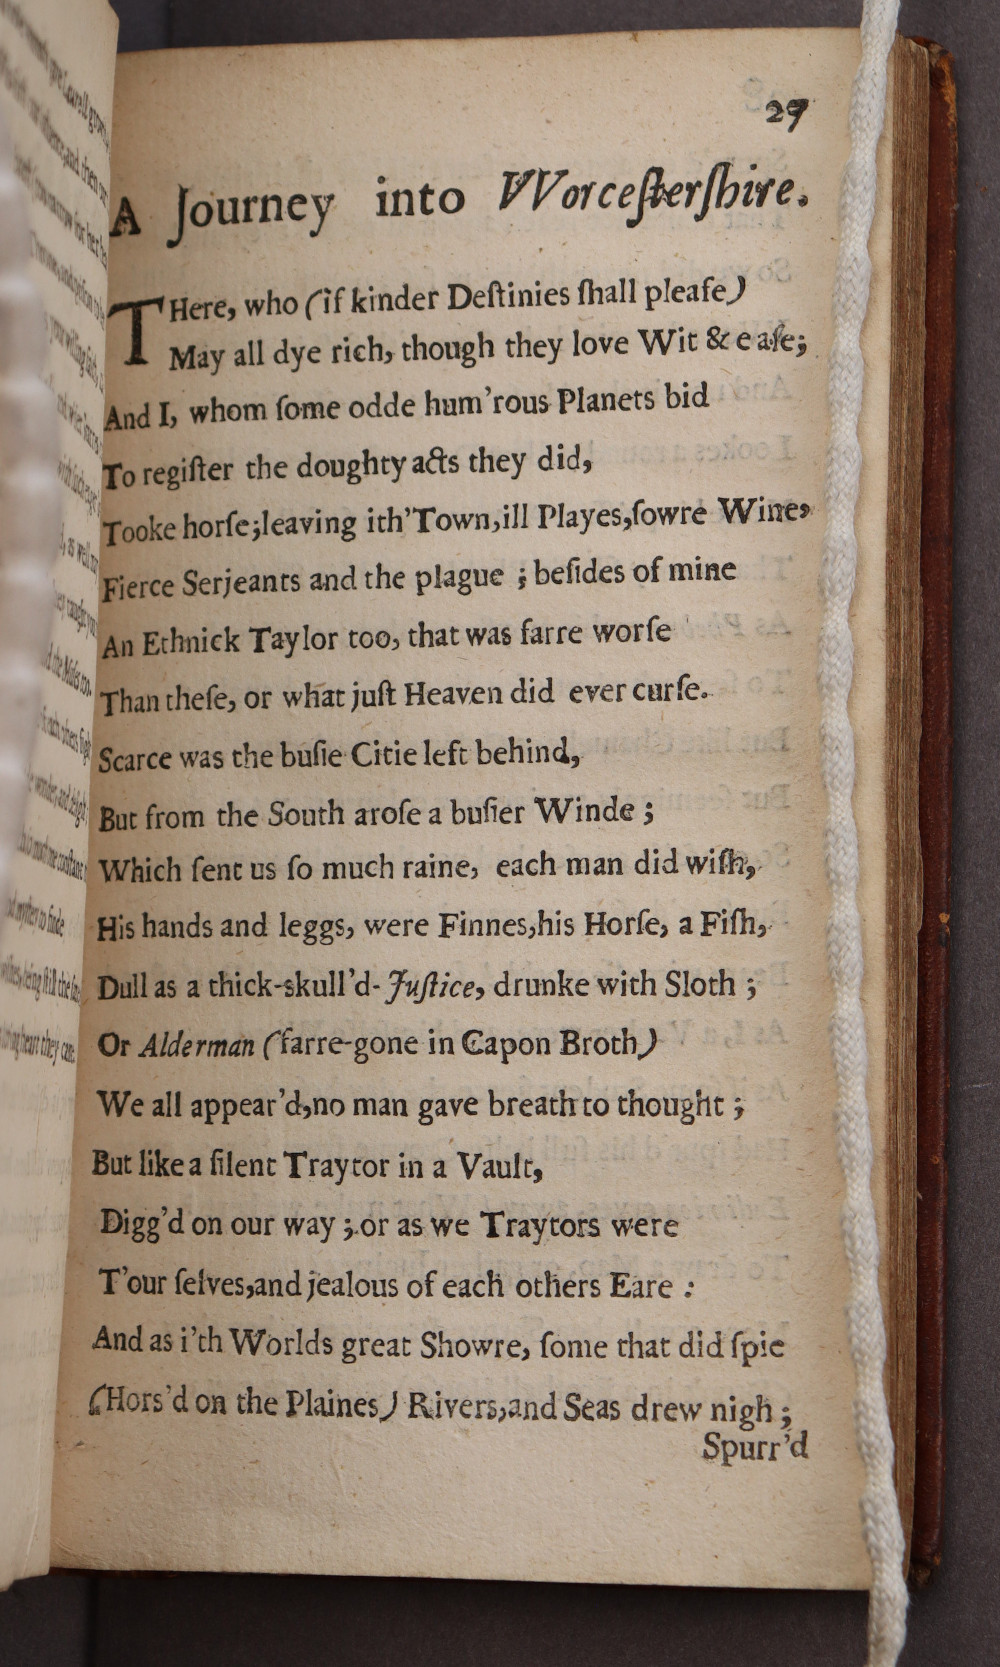 27
A Journey into VVorceſterſhire.
THere, who (if kinder Deſtinies ſhall pleaſe)
May all dye rich, though they love Wit & eaſe;
And I, whom ſome odde hum'rous Planets bid
To regiſter the doughty acts they did,
Tooke horſe; leaving ith'Town, ill Playes, ſowre Wine,
Fierce Serjeants and the plague ; beſides of mine
An Ethnick Taylor too, that was farre worſe
Than theſe, or what juſt Heaven did ever curſe.
Scarce was the buſie Citie left behind,
But from the South aroſe a buſier Winde ;
Which ſent us ſo much raine, each man did wiſh,
His hands and leggs, were Finnes, his Horſe, a Fiſh,
Dull as a thick-skull'd-Juſtice, drunke with Sloth ;
Or Alderman (farre-gone in Capon Broth)
We all appear'd, no man gave breath to thought ;
But like a ſilent Traytor in a Vault,
Digg'd on our way ; or as we Traytors were
T'our ſelves, and jealous of each others Eare :
And as i'th Worlds great Showre, ſome that did ſpie
(Hors'd on the Plaines) Rivers, and Seas drew nigh ;
Spurr'd